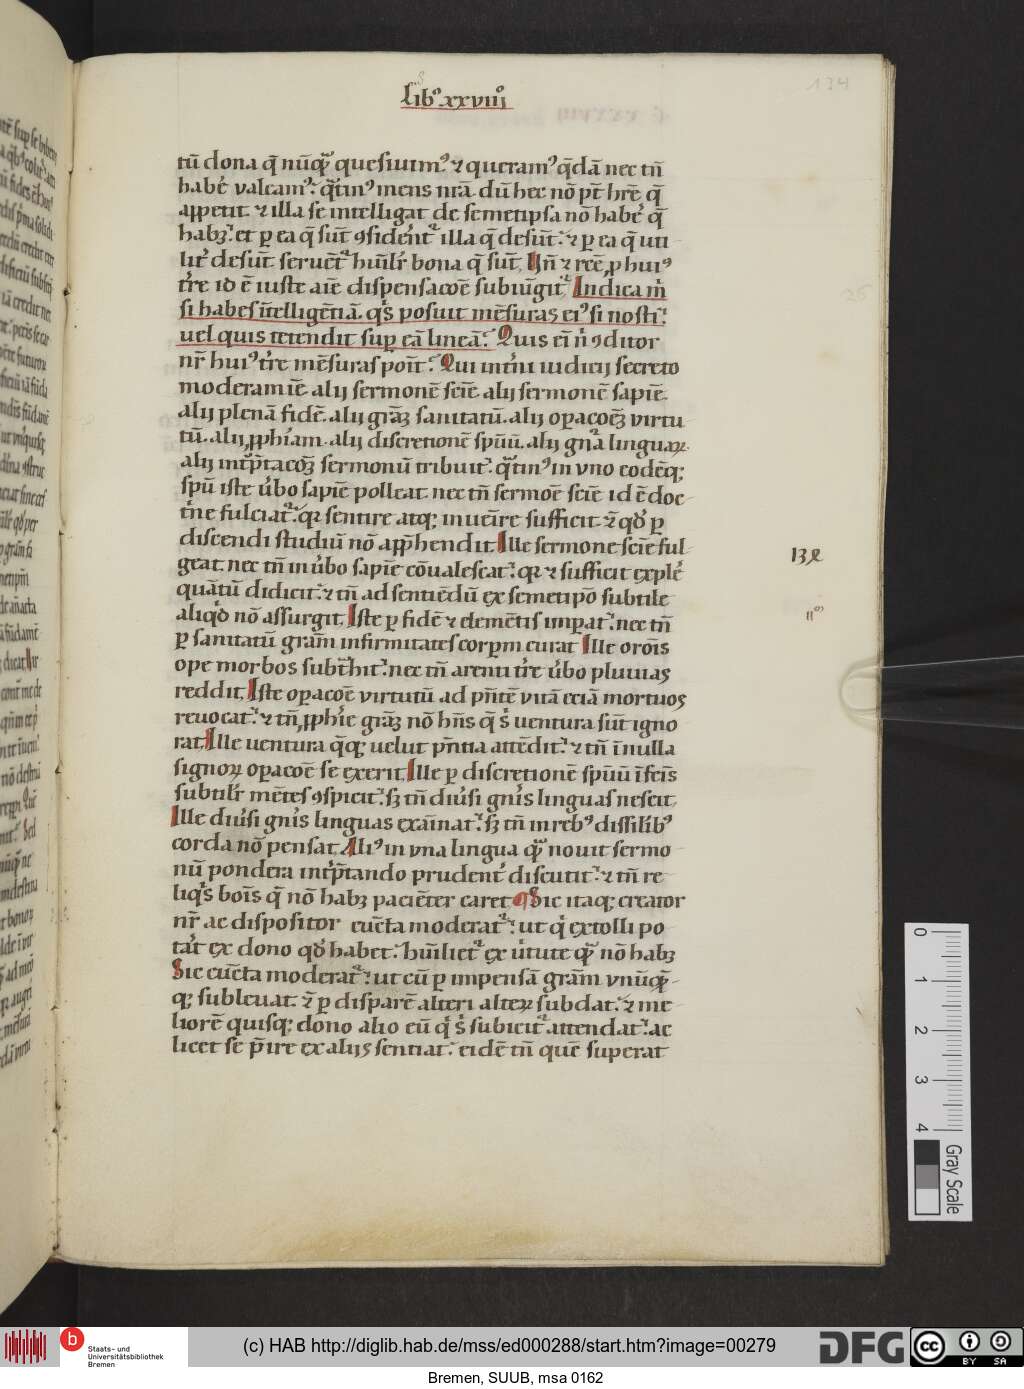 134
Lib° xxviiı°
tū dona q̄ nūqͣ quesiuimꝰ ⁊ queramꝰ q̄dā nec tn̄
habē valeamꝰ: qͣtinꝰ mens nr̄a dū hec nō pt̄ hr̄e q̄
appetit ⁊ illa se intelligat de semetipsa nō habē q̄
habꝫ: et ꝑ ea q̄ sūt ꝯsidēntͬ illa q̄ desūt: ⁊ ꝑ ea q̄ uti
litͬ desūt seruētͬ hūilr̄ bona q̄ sūt. Jn̄ ⁊ rcē ꝓ huiꝰ
tr̄re id ē iuste aīe dispensac̄oē subiūgitͬ Jndica m̄
si habes īt̄elligētiā. qͥs posuit mēsuras eiꝰ si nosti:
uel quis tetendit suꝑ eā lineā: Quis eī n̄ ꝯditor
nr̄ huiꝰ tr̄re mēsuras poīt: Qui int̄ni iudicij secreto
moderamīe alij sermonē scīe alij sermonē sapīe
alij plenā fidē. alij grāꝫ sanitatū. alij oꝑac̄oēꝫ virtu
tū. alij ꝓphīam. alij discretionē spūū. alij gn̄a linguaꝝ.
alij int̄p̄tac̄oꝫ sermonū tribuit: qͣtinꝰ in vno eodēqꝫ
spū iste ūbo sapīe polleat nec tn̄ sermoē scīe id ē doc
t̄ne fulciatͬ: qꝛ sentire atqꝫ inueīre sufficit ⁊ qđ ꝑ
discendi studiū nō app̄hendit. Ille sermone scīe ful
geat. nec tn̄ in ūbo sapīe cōualescat: qꝛ ⁊ sufficit explē
quātū didicit: ⁊ tn̄ ad sentiēdū ex semetip̄o subtile
aliqđ nō assurgit. Iste ꝑ fidē ⁊ elemētis imꝑat: nec tn̄
ꝑ sanitatū grām infirmitates corꝑm curat Ille orōīs
ope morbos subt̄hit: nec tn̄ arenti tr̄re ūbo pluuias
reddit. Iste oꝑac̄oē virtutū ad pn̄tē vitā eciā mortuos
reuocat: ⁊ tn̄ ꝓphīe grāꝫ nō hn̄s q̄ sͥ uentura sūt igno
rat. Ille uentura q̄qꝫ uelut pn̄tia attēdit: ⁊ tn̄ ī nulla
signoꝝ oꝑac̄oē se exerit. Ille ꝑ discretionē spūū īfeīs
subtilr̄ mētes ꝯspicit: sꝫ tn̄ diūsi gn̄is linguas nescit.
Ille diūsi gn̄is linguas exaīnat: sꝫ tn̄ in rebꝰ dissilībꝰ
corda nō pensat. Aliꝰ in vna lingua qͣ nouit sermo
nū pondera int̄p̄tando prudentͬ discutit: ⁊ tn̄ re
liqͥs boīs q̄ nō habꝫ paciēter caret ¶ Sic itaqꝫ creator
nr̄ ac dispositor cūcta moderatͬ: ut qͥ extolli po
tāt ex dono qđ habet: hūilietͬ ex ūtute qͣ nō habꝫ
Sic cūcta moderatͬ: ut cū ꝑ impensā grām vnūqͣ
qꝫ subleuat. ⁊ ꝑ disparē alteri alteꝝ subdat. ⁊ me
liorē quisqꝫ dono alio eū qͥ sͥ subicitͬ attendat: ac
licet se p̄ire ex alijs sentiat: eidē tn̄ quē superat
0 1 2 3 4
Gray Scale
b
Staats- und
Universitätsbibliothek
Bremen
(c) HAB http://diglib.hab.de/mss/ed000288/start.htm?image=00279
DFG
cc BY SA
Bremen, SUUB, msa 0162